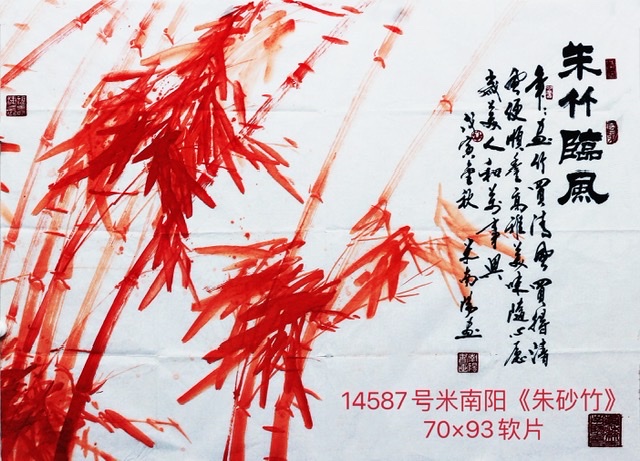 朱竹臨風
年年畫竹買清風買得清
風便順高雅美味隨心應
歲美人和萬事興
寅金秋 米南陽畫
14587号米南阳《朱砂竹》
70×93软片